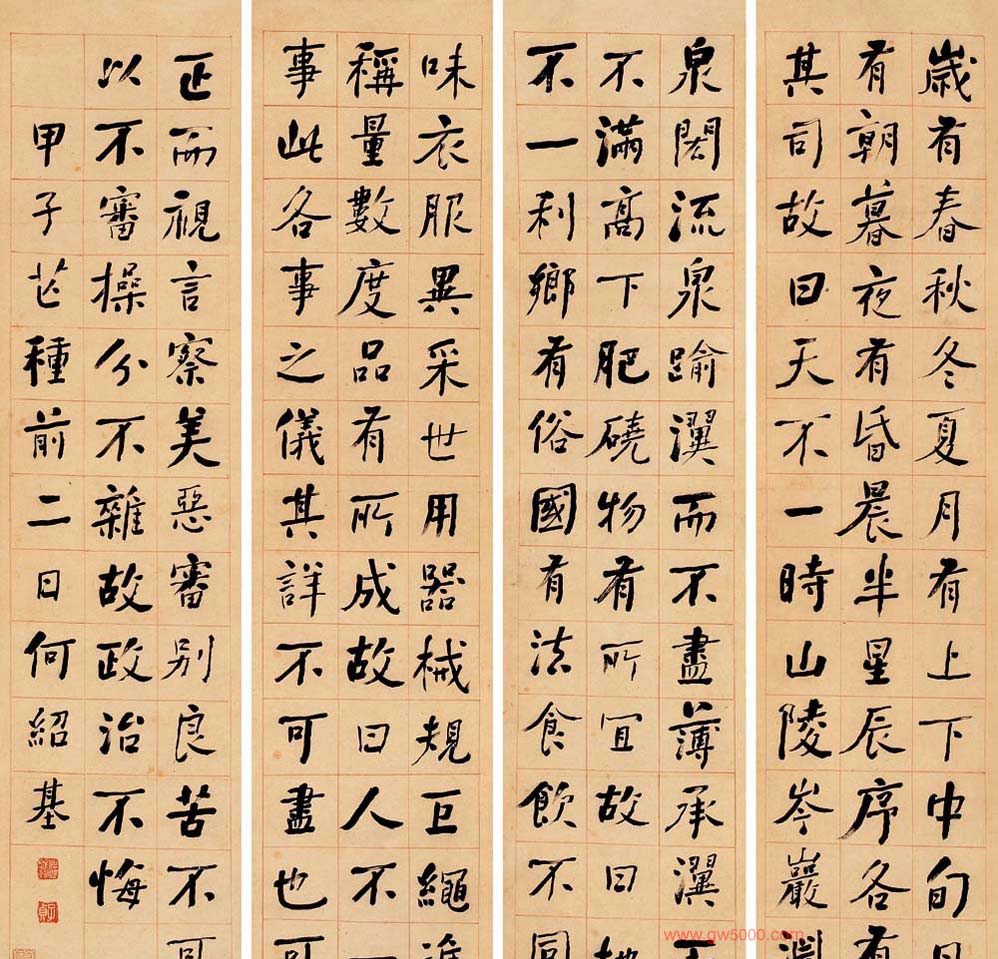 歲有春秋冬夏月有上下中旬日
有朝暮夜有昏晨半星辰序各有
其司故曰天不一時山陵岑巖淵
泉閎流泉踰瀷而不盡薄承瀷而不
不滿高下肥磽物有所宜故曰地
不一利鄉有俗國有法食飲不同
味衣服異采世用器械規巨繩准
稱量數度品有所成故曰人不
事此各事之儀其詳不可盡也可
正而視言察美惡審別良苦不可
以不審操分不雜故政治不悔
甲子芒種前二日何紹基
www.gw5000.com